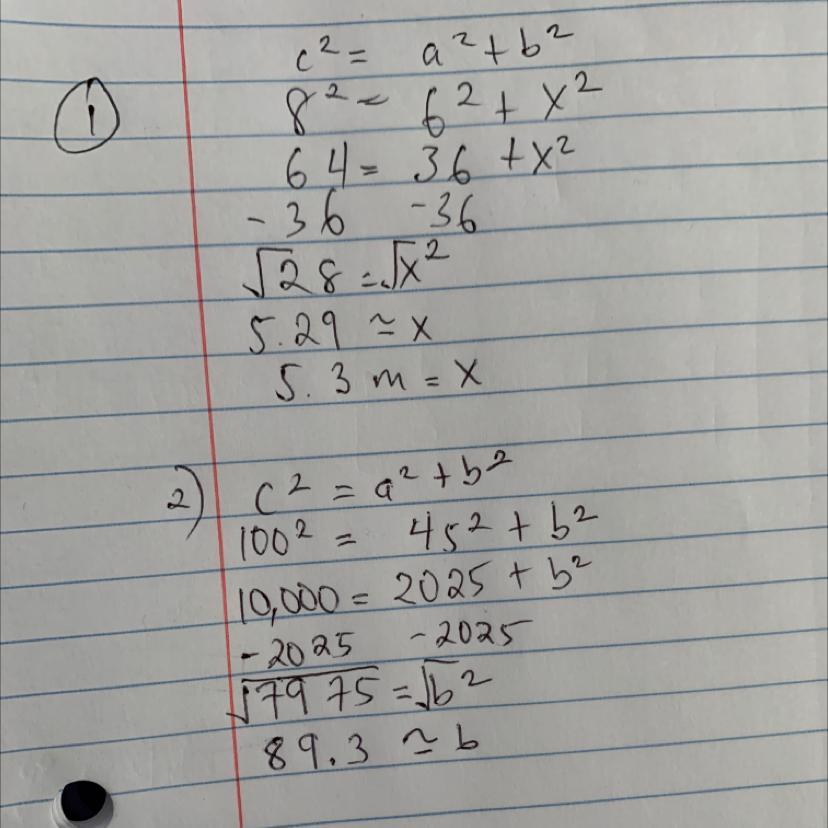 ① c² = a² + b²
8² = 6² + x²
64 = 36 + x²
-36 -36
√28 = √x²
5.29 ≃ x
5.3 m = x
2) c² = a² + b²
100² = 45² + b²
10,000 = 2025 + b²
-2025 -2025
√7975 = √b²
89.3 ≃ b